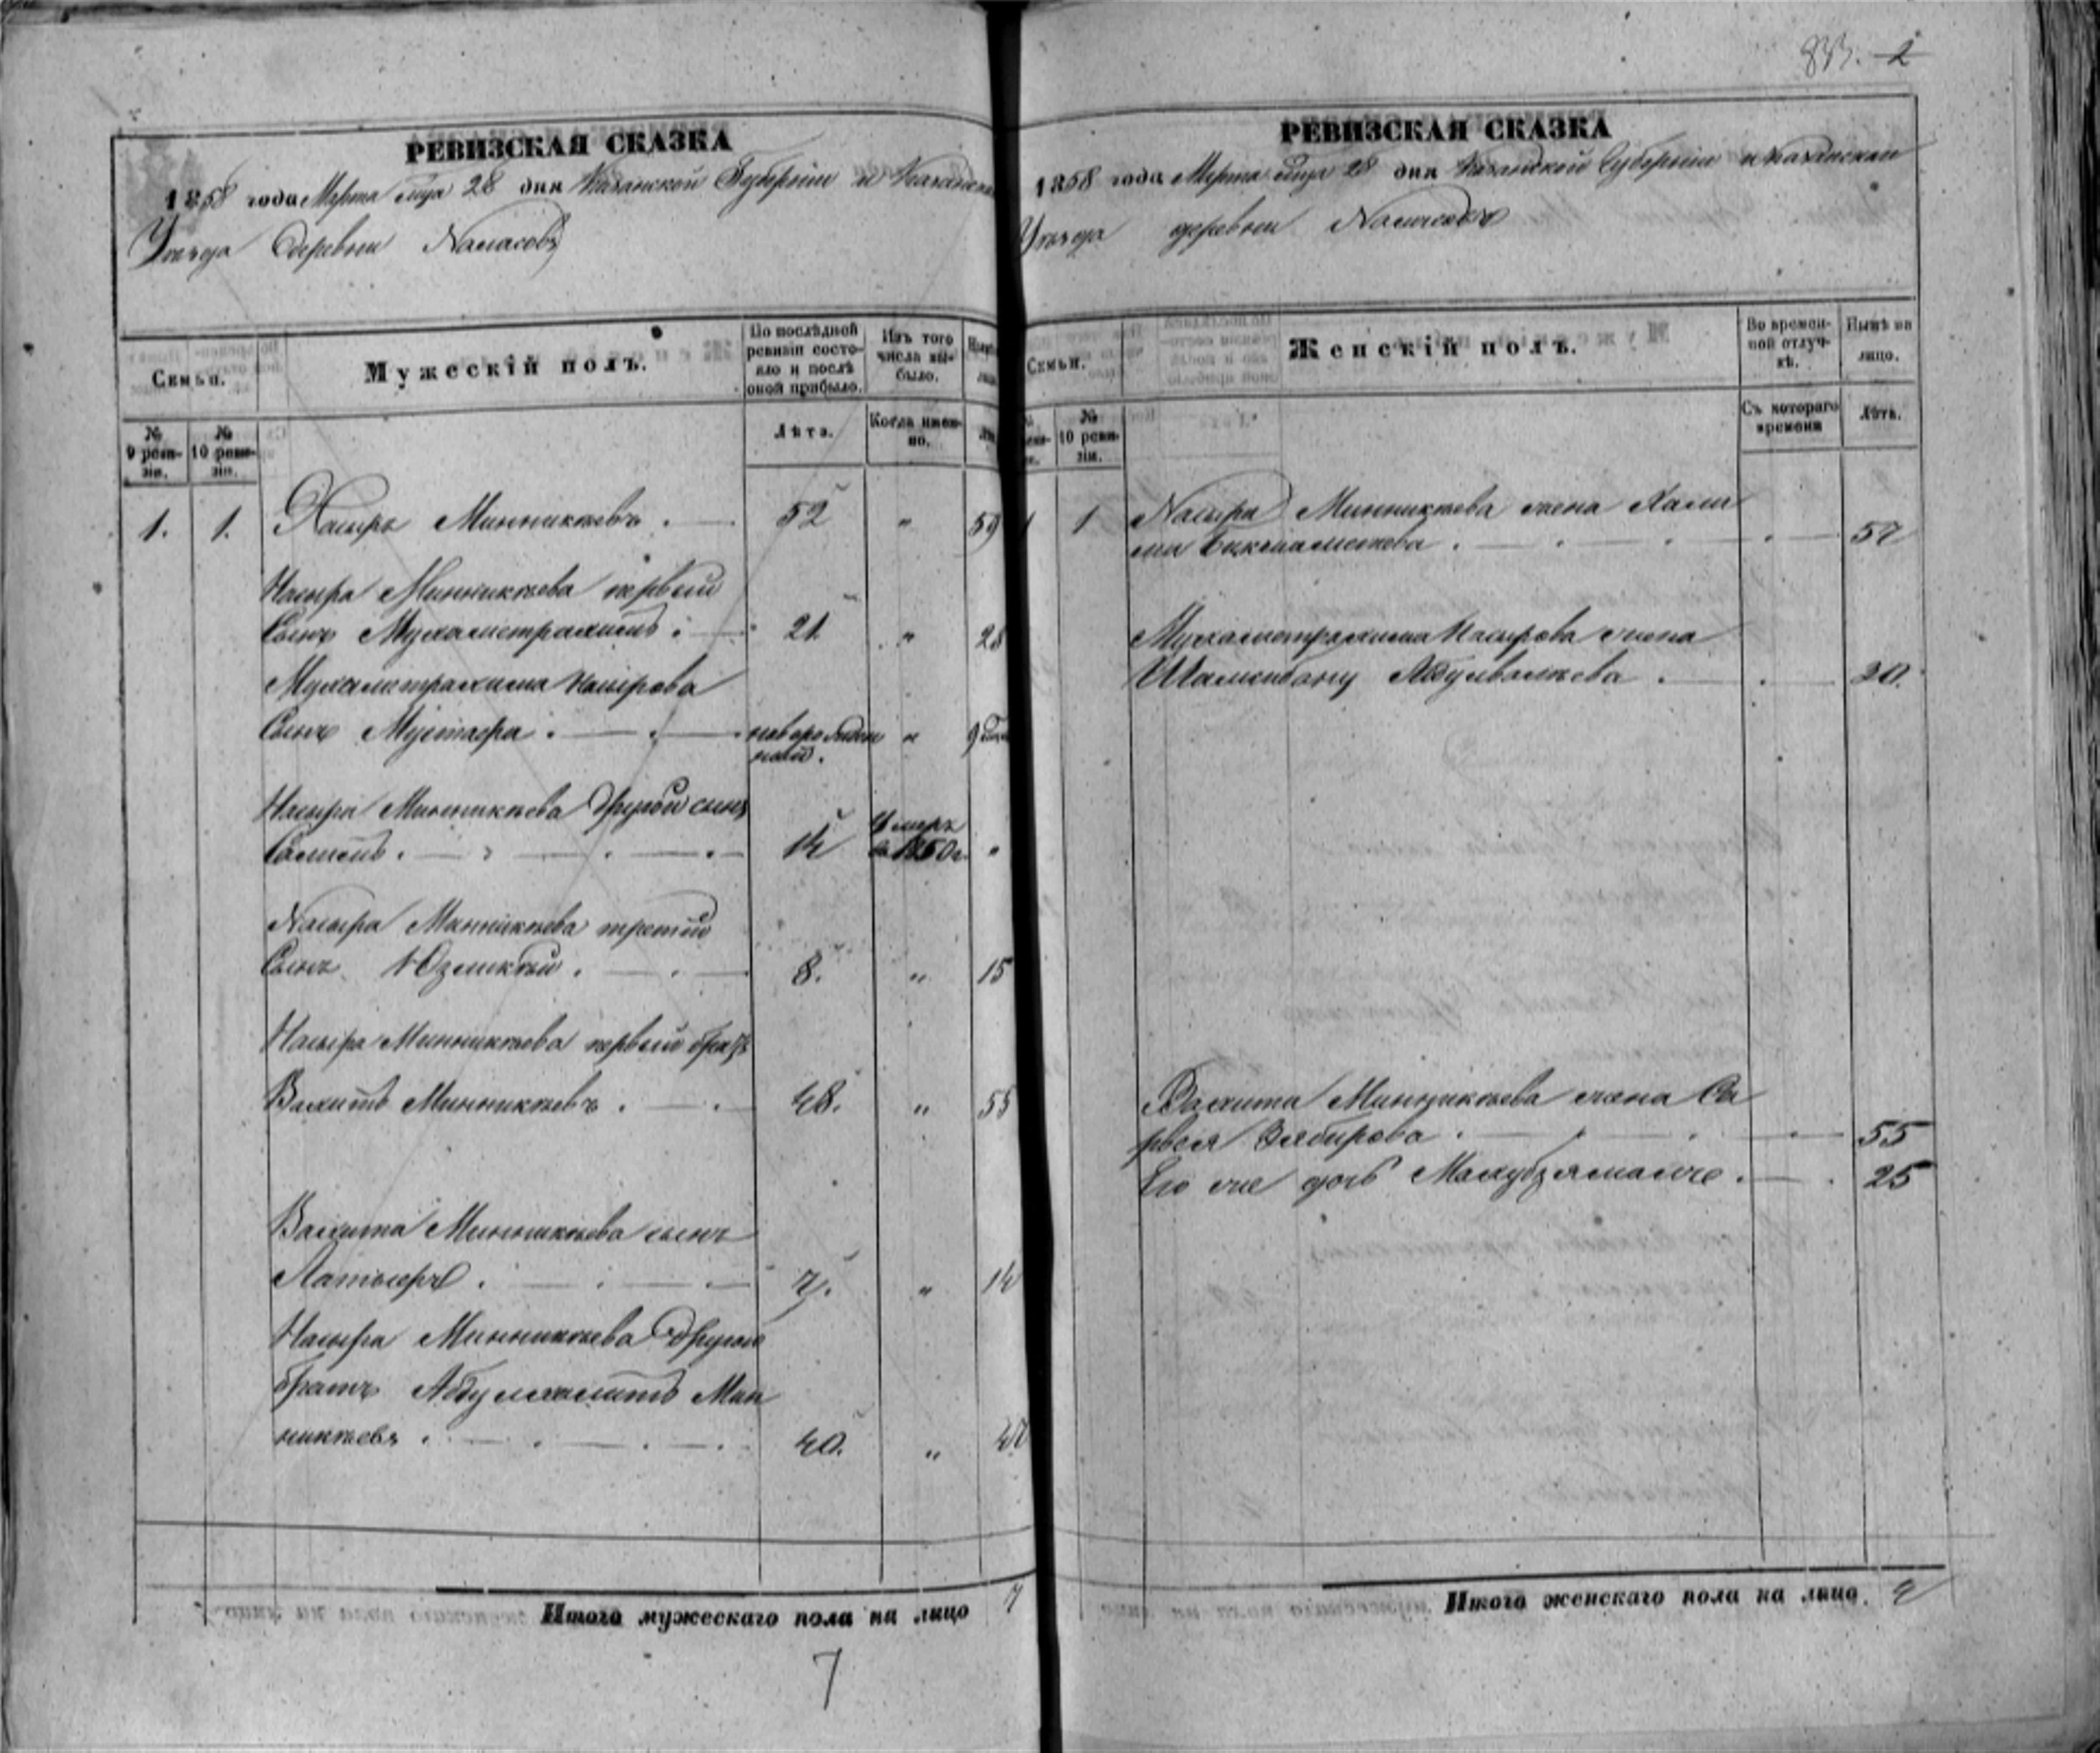 833. 2
РЕВИЗСКАЯ СКАЗКА
1858 года Марта м҃ца 28 дня Казанской Губерніи и Казанска
Уѣзда деревни
Семьи.
Мужескій полъ.
По послѣдней ревизіи состояло и послѣ оной прибыло.
Изъ того числа выбыло.
№ 9 ревизіи.
№ 10 ревизіи.
Лѣтъ.
Когда именно.
1. 1. Насыръ Минникѣевъ . 52 " 59
Насыра Минникѣева первый
Сынъ Мухаметрахимъ . 21 " 28
Мухаметрахима Насырова
Сынъ Мустафа . новорожден " 9
ный.
Насыра Минникѣева другой сынъ
Салитъ . 14 Умеръ въ 1850 г. "
Насыра Минникѣева третій
Сынъ . 8. " 15
Насыра Минникѣева первый братъ
Вахитъ Минникѣевъ . 48. " 55
Вахита Минникѣева сынъ
7. " 14
Насыра Минникѣева другой
братъ Абдулхалитъ Мин
никѣевъ . 40. " 47
Итого мужескаго пола на лицо 7
7
РЕВИЗСКАЯ СКАЗКА
1858 года Марта м҃ца 28 дня Казанской Губерніи и Казанскаго
Уѣзда деревни
Семьи.
Женскій полъ.
Во временной отлучкѣ.
Нынѣ на лицо.
№ 10 ревизіи.
Съ котораго времени
Лѣтъ.
1 1 Насыра Минникѣева жена Хали
ма Бикмаметева . 57
Мухаметрахима Насырова жена
Шамсибану Абдулвалѣева . 20.
Вахита Минникѣева жена Са
рвея Зябирова . 55
Его же дочь . 25
Итого женскаго пола на лицо. 4